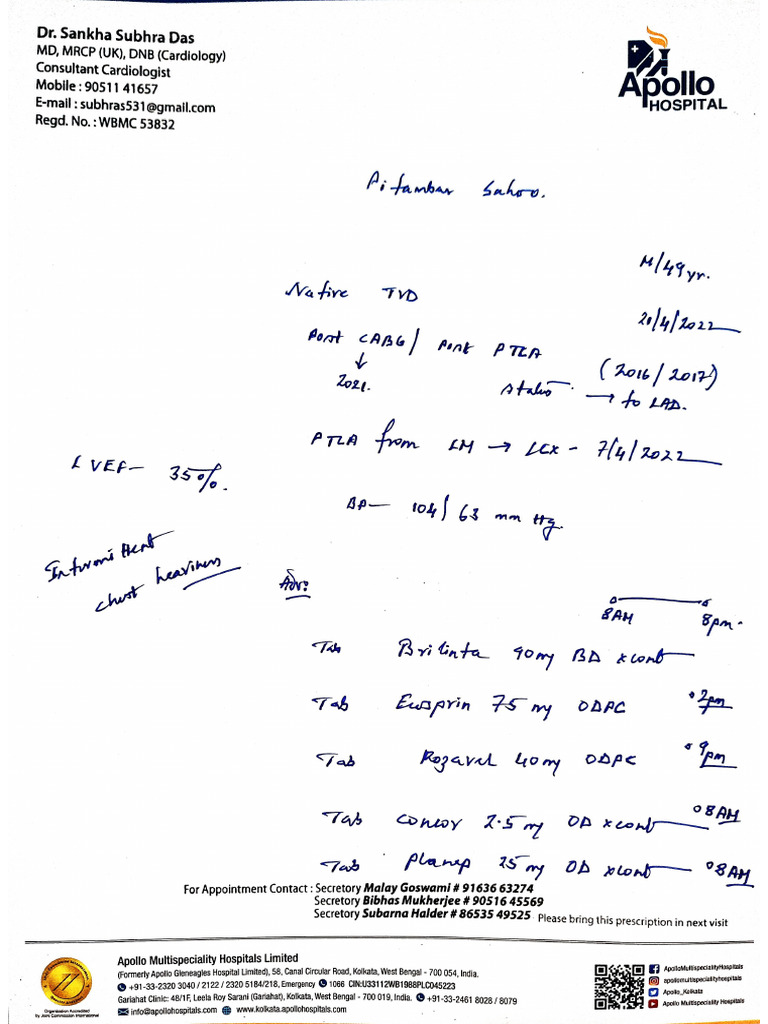 Dr. Sankha Subhra Das
MD, MRCP (UK), DNB (Cardiology)
Consultant Cardiologist
Mobile : 90511 41657
E-mail : subhras531@gmail.com
Regd. No. : WBMC 53832
Apollo
HOSPITAL
Pitambar Sahoo.
M/49yr.
Native TVD
20/4/2022
Post CABG / Post PTCA
(2016/2017)
↓
2021.
→ to LAD.
PTCA from LM → LCX - 7/4/2022
LVEF- 35%.
BP- 104/63 mm Hg.
Intermittent
chest heaviness
Adv:
8AM 8pm.
Tab Brilinta 90mg BD x cont
Tab Ecosprin 75 mg ODPC 2pm
Tab Rozavel 40mg ODPC 9pm
Tab Concor 2.5 mg OD x cont 8AM
Tab Planep 25 mg OD x cont 8AM
For Appointment Contact : Secretary Malay Goswami # 91636 63274
Secretary Bibhas Mukherjee # 90516 45569
Secretary Subarna Halder # 86535 49525
Please bring this prescription in next visit
Apollo Multispeciality Hospitals Limited
(Formerly Apollo Gleneagles Hospital Limited), 58, Canal Circular Road, Kolkata, West Bengal - 700 054, India.
+91-33-2320 3040 / 2122 / 2320 5184/218, Emergency 1066 CIN:U33112WB1988PLC045223
Gariahat Clinic: 48/1F, Leela Roy Sarani (Gariahat), Kolkata, West Bengal - 700 019, India. +91-33-2461 8028 / 8079
info@apollohospitals.com www.kolkata.apollohospitals.com
Organization Accredited
by Joint Commission International
ApolloMultispecialityHospitals
apollomultispecialityhospitals
Apollo_Kolkata
Apollo Multispeciality Hospitals